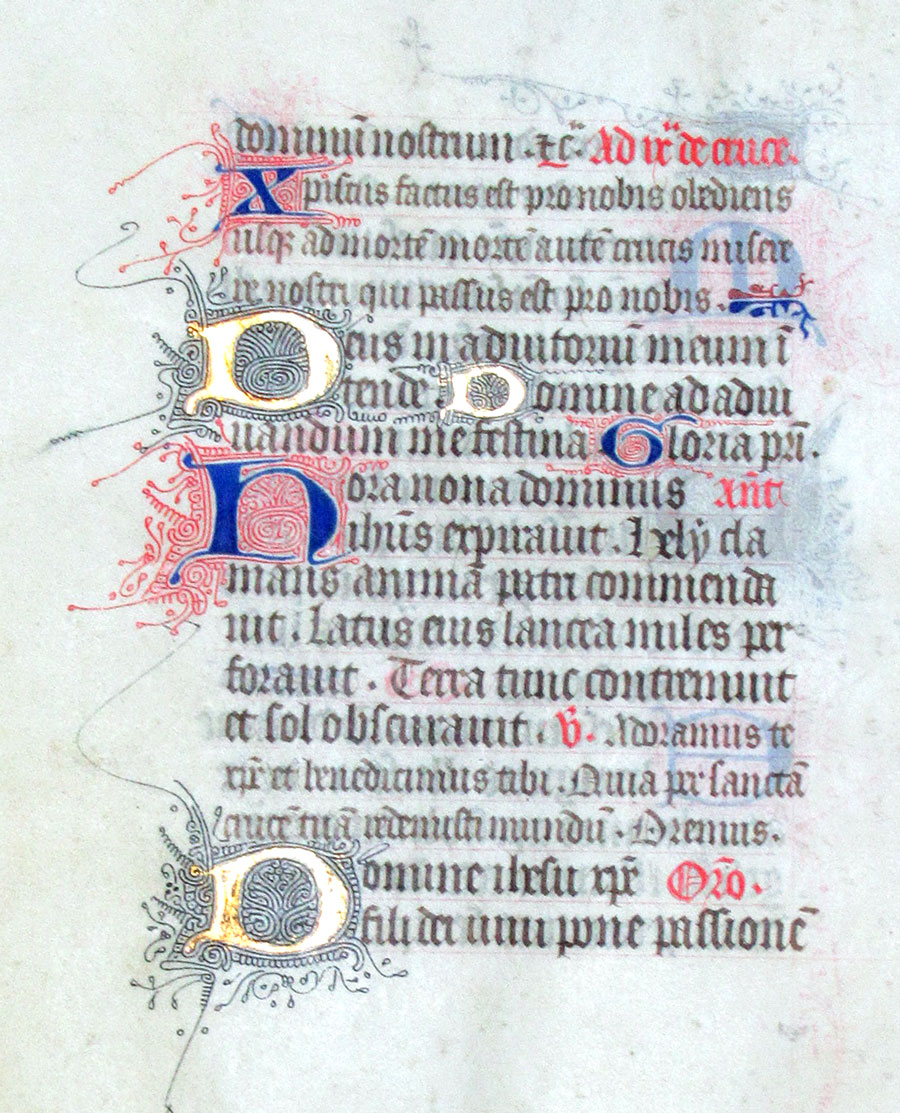 dominū nostrum · ⁊c̄· Ad ix᷑ de cruce·
Xpistus factus est pro nobis obediens
usqꝫ ad mortē mortē autē crucis misere
re nostri qui passus est pro nobis ·
Deus in adiutoriū meum ī
tende · Domine ad adiu
uandum me festina Gloria pr̄i·
Hora nona dominus Ant̄
ihūs expirauit · Hely cla
mans animā patri commenda
uit · Latus eius lancea miles per
forauit · Terra tunc contremuit
et sol obscurauit · V̄· Adoramus te
xp̄e et benedicimus tibi · Quia per sanctā
crucē tuā redemisti mundū · Oremus·
Domine ihesu xp̄e Or̄o·
fili dei uiui pone passionē